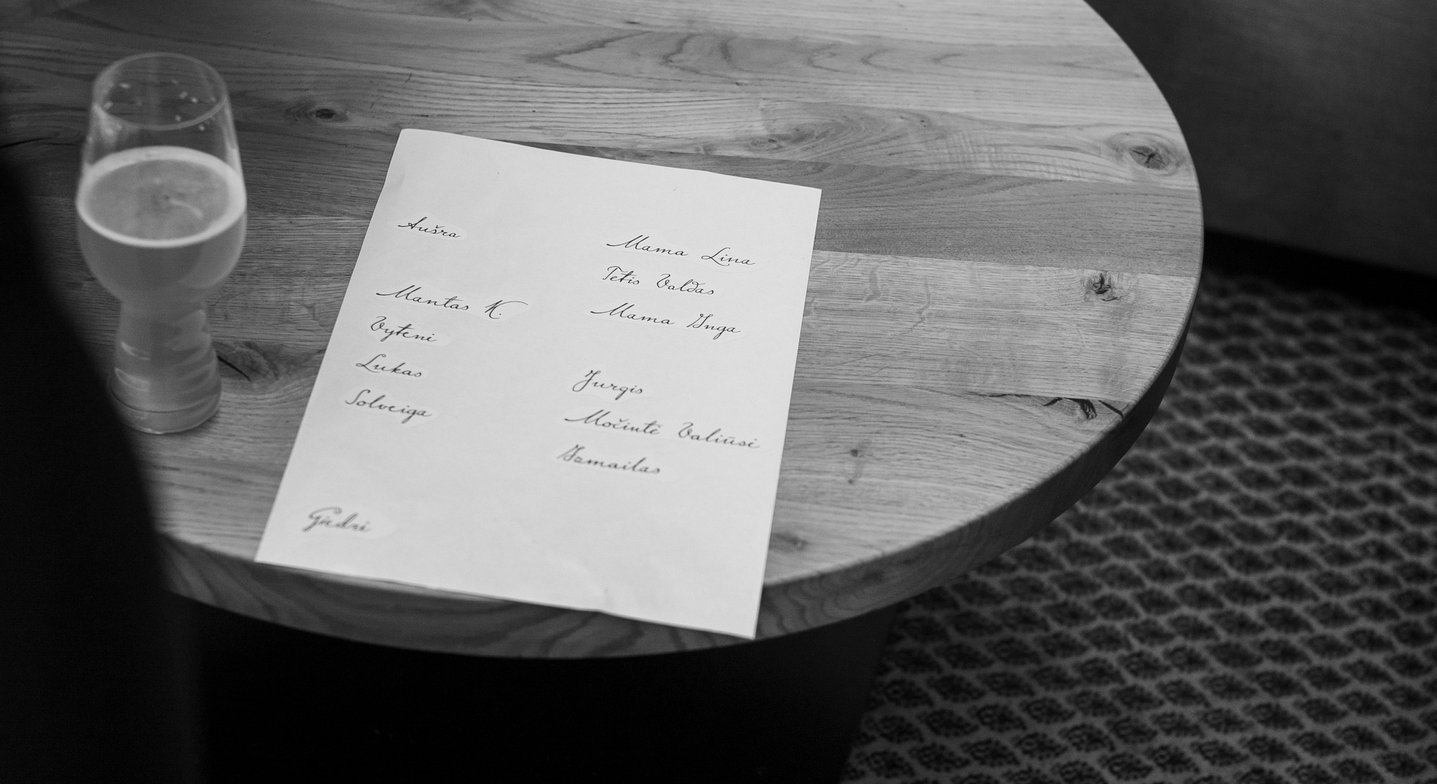 Aušra
Mantas K.
Vyteni
Lukas
Solveiga
Giedri
Mama Lina
Tėtis Valdas
Mama Inga
Jurgis
Močiutė Valiūsi
Izmailas